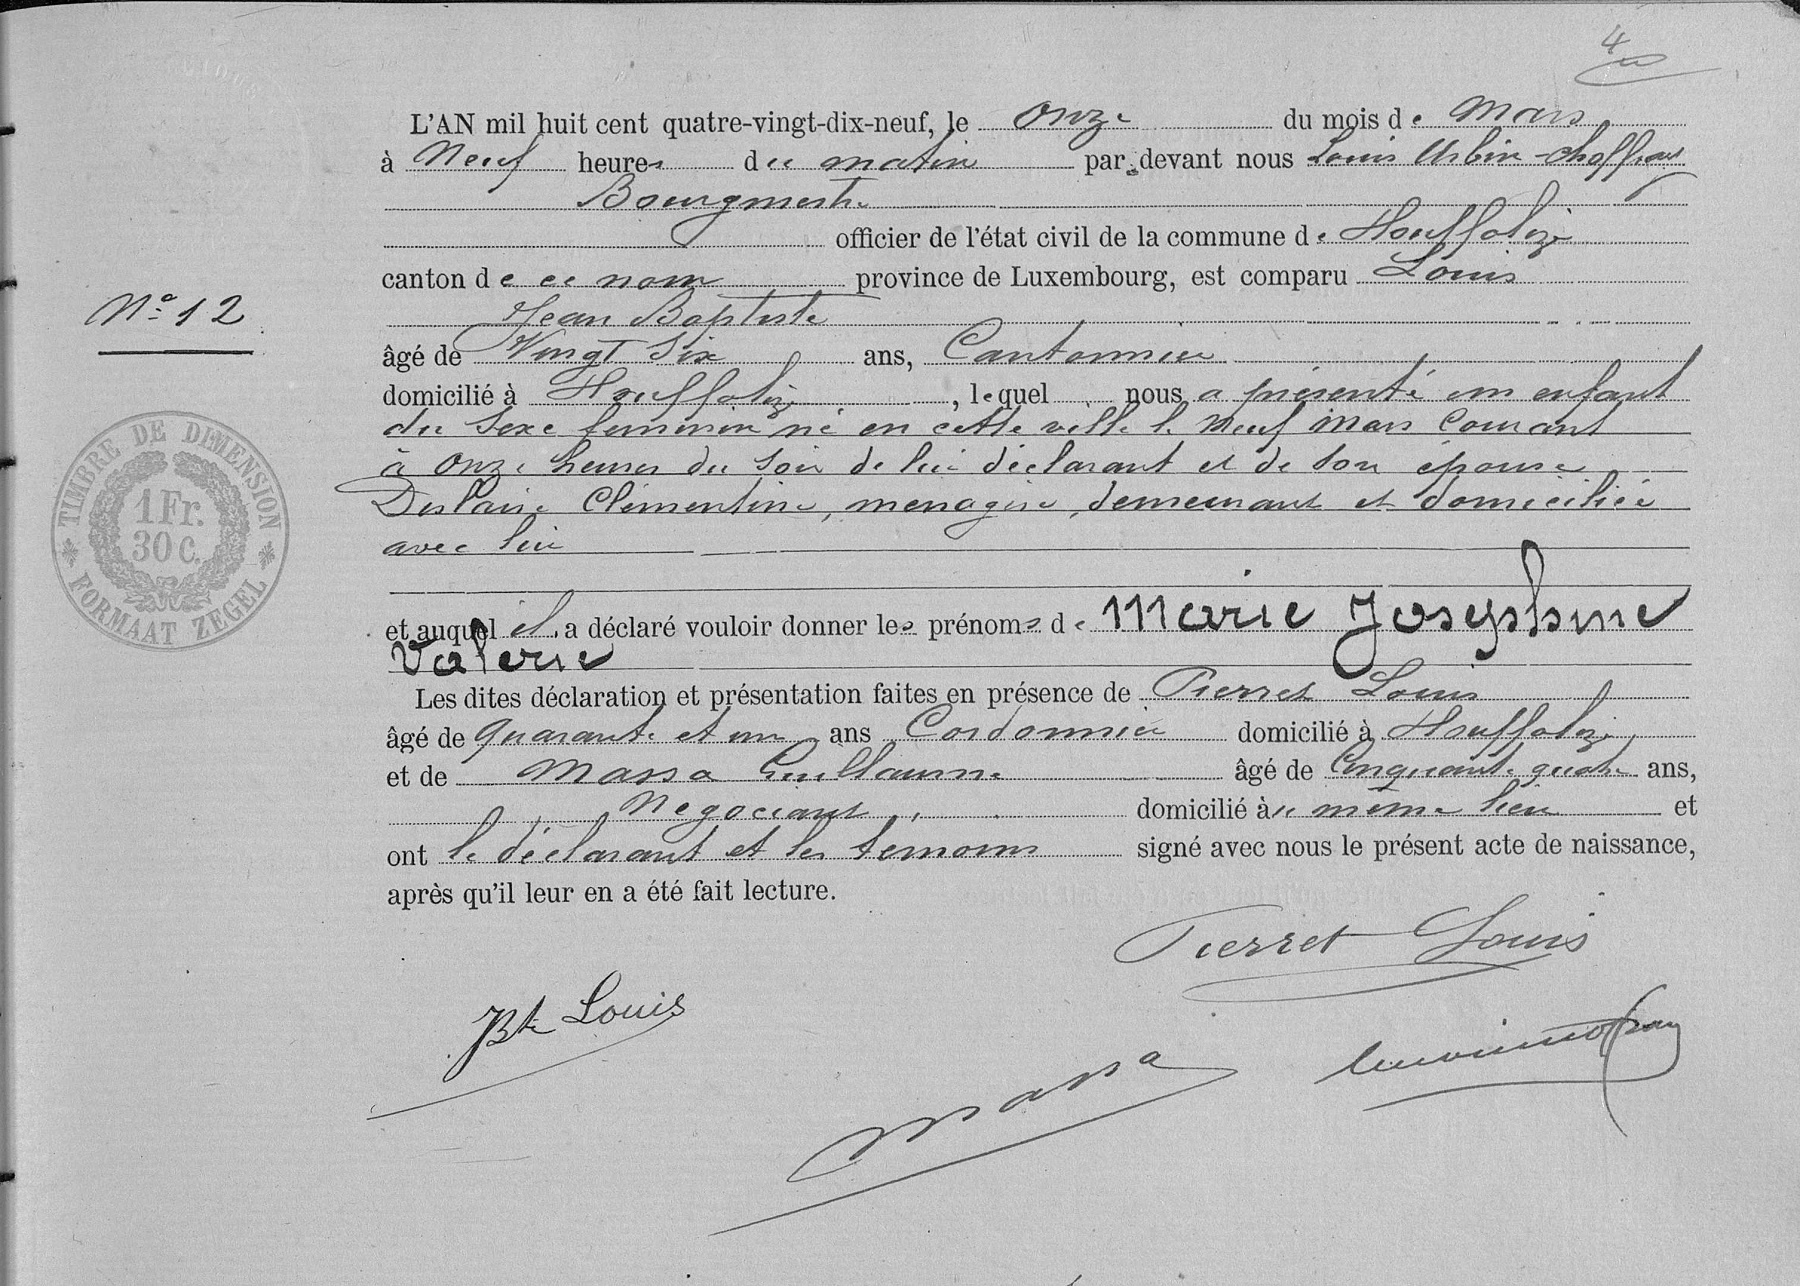 4
L'AN mil huit cent quatre-vingt-dix-neuf, le onze du mois de Mars
à Neuf heures du matin par devant nous Louis Urbin-choffray
Bourgmestre
officier de l'état civil de la commune de Houffalize
canton de ce nom province de Luxembourg, est comparu Louis
Jean Baptiste
âgé de Vingt Six ans, Cantonnier
domicilié à Houffalize, lequel nous a présenté un enfant
du sexe féminin né en cette ville le neuf Mars Courant
à onze heures du soir de lui déclarant et de son épouse
Clémentine, menagère, demeurant et domiciliée
avec lui
et auquel il a déclaré vouloir donner les prénoms de Marie Josephine
Valerie
Les dites déclaration et présentation faites en présence de Pierret Louis
âgé de quarante et un ans Cordonnier domicilié à Houffalize
et de Massa Guillaume âgé de Cinquante quatre ans,
Negociant domicilié au même lieu et
ont le déclarant et les temoins signé avec nous le présent acte de naissance,
après qu'il leur en a été fait lecture.
N° 12
TIMBRE DE DIMENSION
1 Fr.
30 C.
FORMAAT ZEGEL
Pierret Louis
JBte Louis
Massa